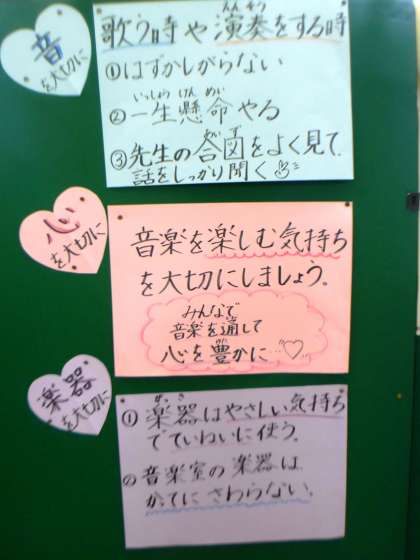 音
を大切に
歌う時や演奏をする時
えんそう
①はずかしがらない
いっしょう けん めい
②一生懸命やる
あい ず
③先生の合図をよく見て、
話をしっかり聞く
心
を大切に
音楽を楽しむ気持ち
を大切にしましょう。
みんなで
音楽を通して
心を豊かに…♡
楽器
を大切に
がっき
①楽器はやさしい気持ち
でていねいに使う。
②音楽室の楽器は
かってにさわらない。